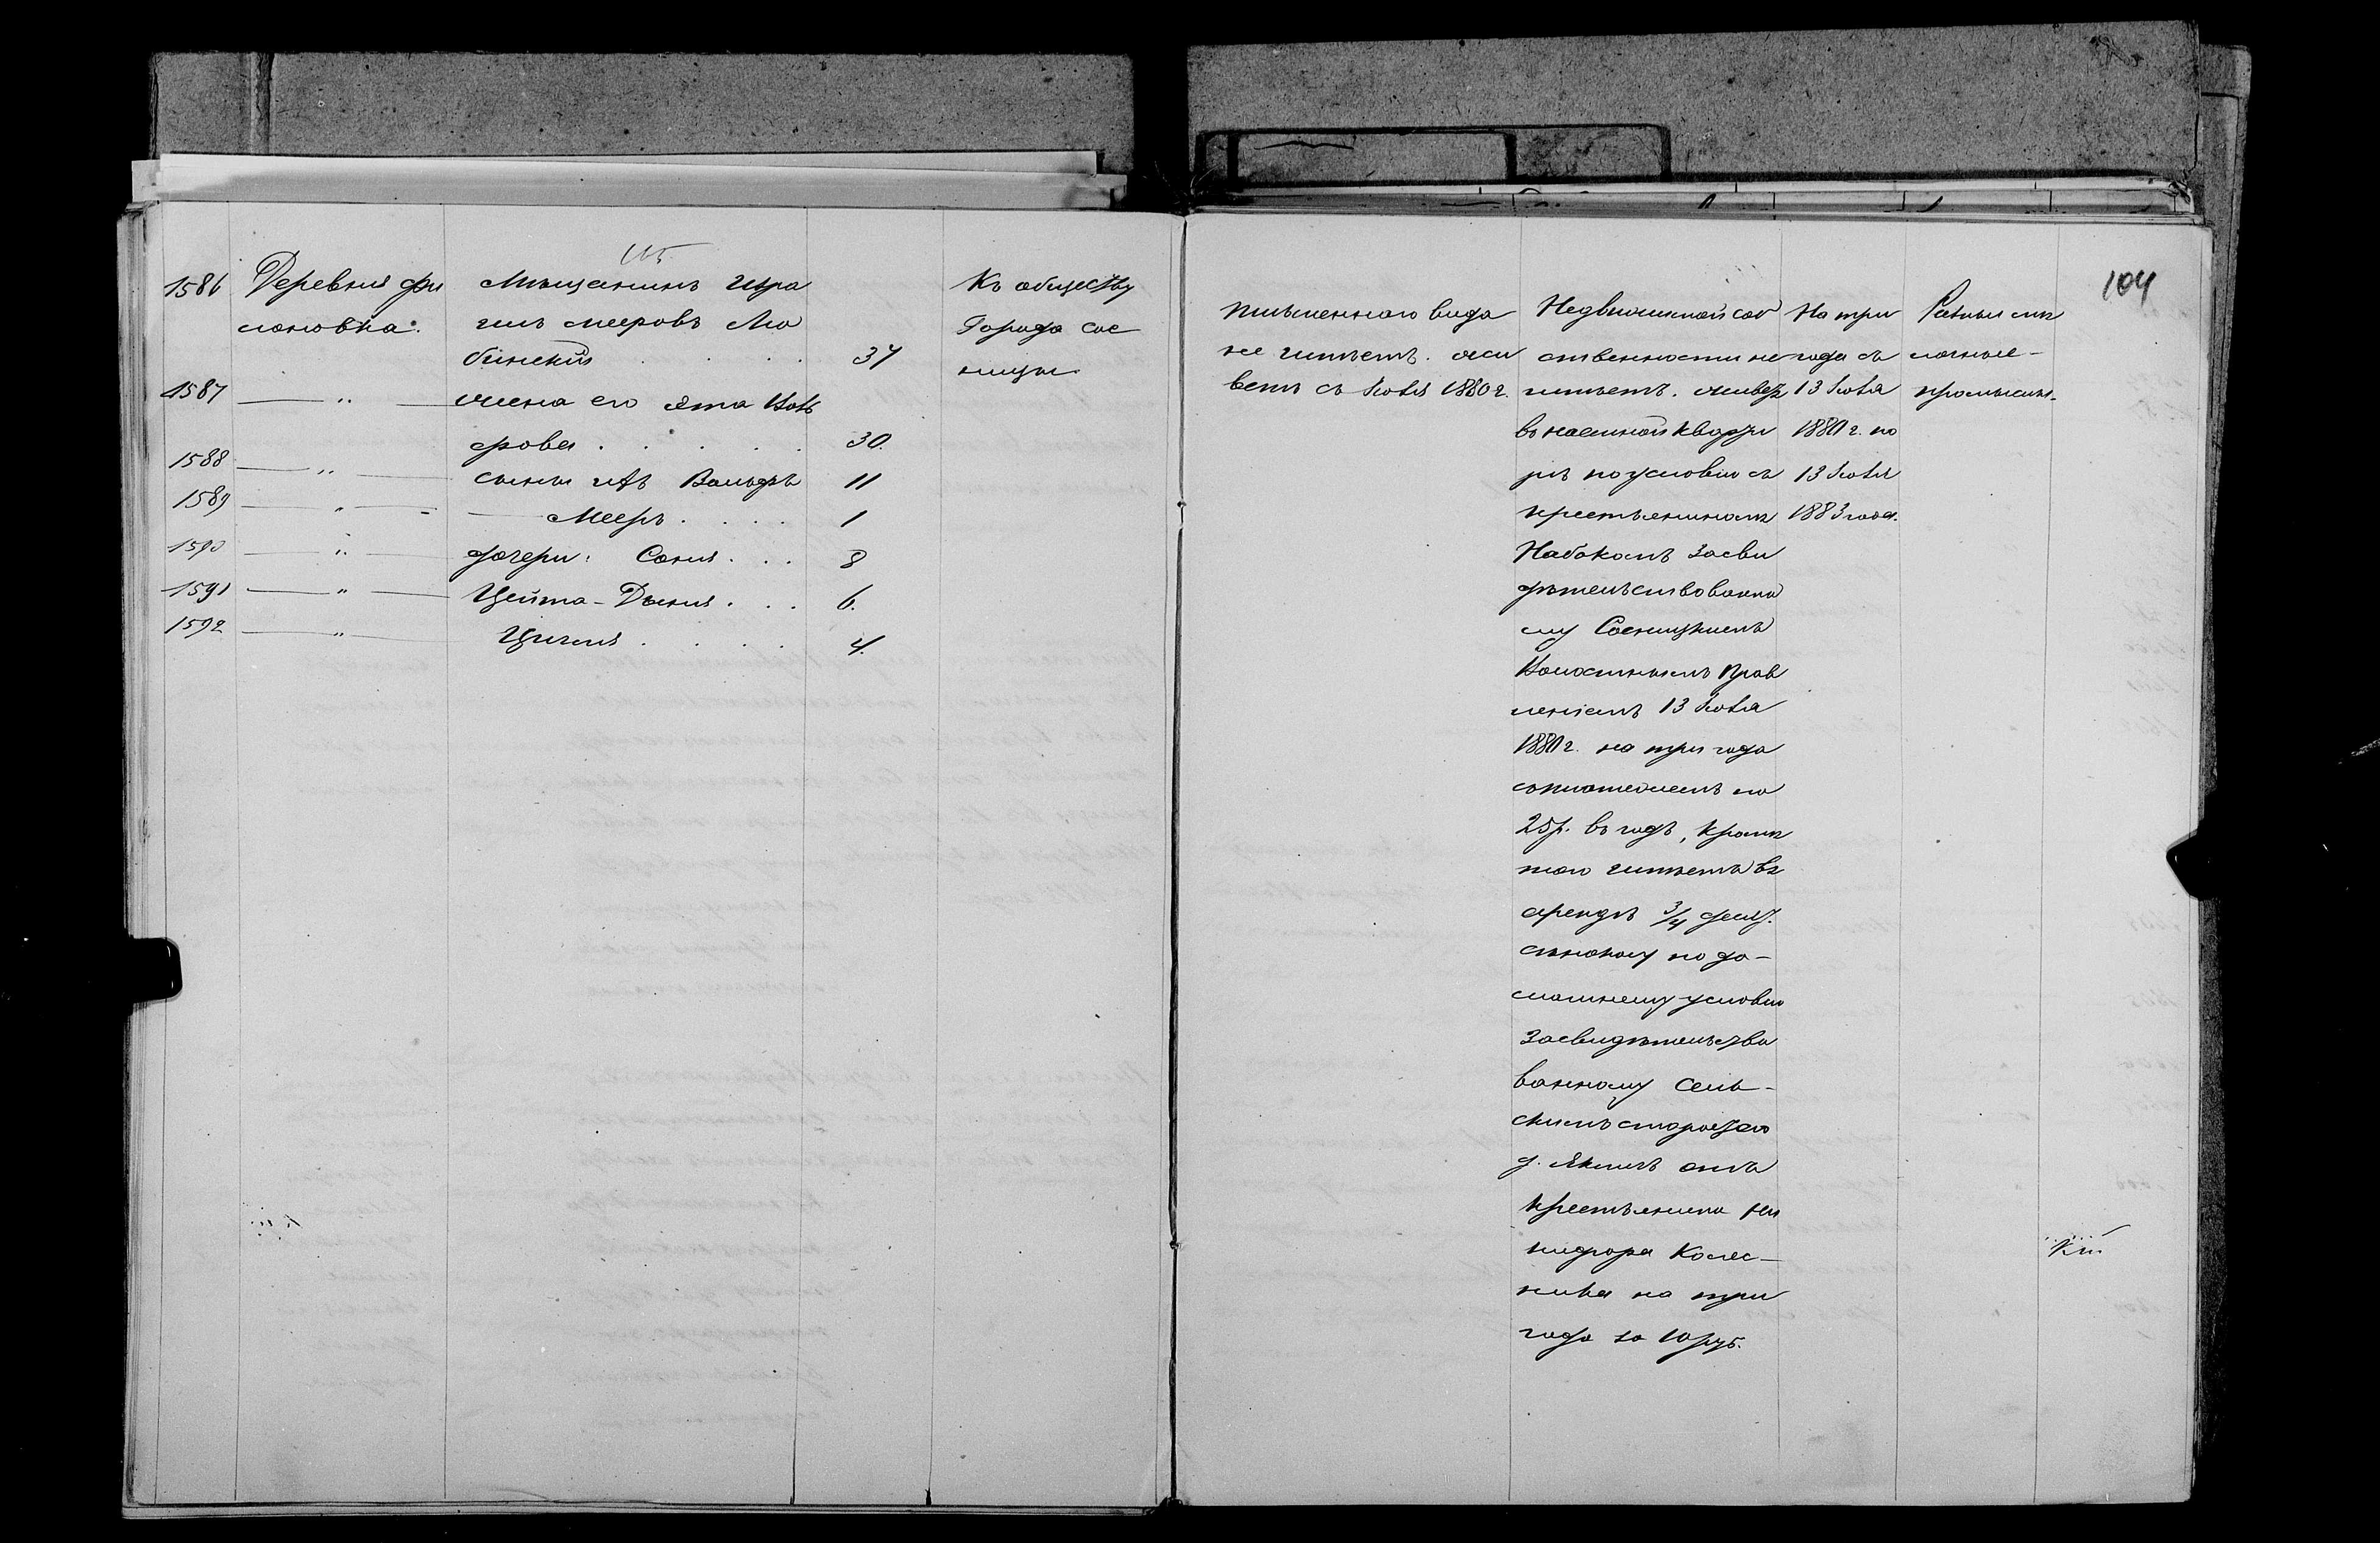 115.
1586 Деревня Фи
лоновка.
Мѣщанинъ Изра
иль Мееровъ Лю
бинскій . . . . 37
Къ обществу
Города Сос
ницы
1587 — " — жена его Ята
фрова . . . . . 30.
1588 — " — сыны ихъ Вольфъ 11
1589 — " — Мееръ . . . . 1
1590 — " — дочери: Соня . . . 8
1591 — " — Цейта-Двеня . . . 6.
1592 — " — . . . . 4.
104
Письменного вида
не имѣетъ. жи
ветъ съ Іюля 1880 г.
Недвижимой соб
ственности не
имѣетъ. живетъ
въ наемной кварти
рѣ по условію съ
крестьяниномъ
Набокомъ засви
дѣтельствованно
му Сосницкимъ
Волостнымъ Прав
леніемъ 13 Іюля
1880 г. на три года
съ платежемъ по
25 р. въ годъ, кромѣ
того имѣетъ въ
арендѣ 3/4 десят.
сѣнокосу по до-
машнему условію
засвидѣтельство
ванному Сель-
скимъ старостою
д. отъ
крестьянина Ни
кифора Колес-
ника на три
года за 10 руб.
На три
года съ
13 Іюля
1880 г. по
13 Іюля
1883 года.
Разные мѣ
лочные
промыслы.